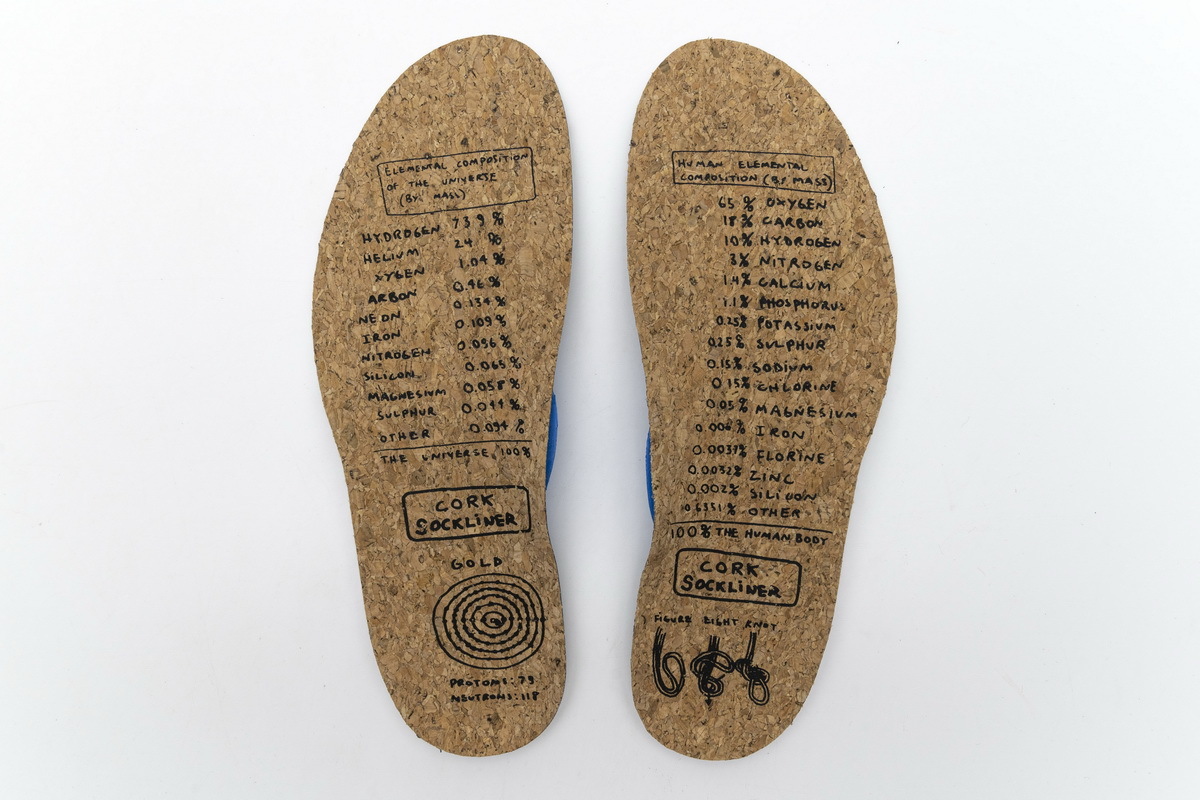 ELEMENTAL COMPOSITION
OF THE UNIVERSE
(BY MASS)
HYDROGEN 73.9 %
HELIUM 24 %
XYGEN 1.04 %
ARBON 0.46 %
NEON 0.134 %
IRON 0.109 %
NITROGEN 0.096 %
SILICON 0.065 %
MAGNESIUM 0.058 %
SULPHUR 0.044 %
OTHER 0.094 %
THE UNIVERSE 100%
CORK
SOCKLINER
GOLD
PROTONS: 79
NEUTRONS: 118
HUMAN ELEMENTAL
COMPOSITION (BY MASS)
65 % OXYGEN
18 % CARBON
10% HYDROGEN
3% NITROGEN
1.4% CALCIUM
1.1% PHOSPHORUS
0.25% POTASSIUM
0.25% SULPHUR
0.15% SODIUM
0.15% CHLORINE
0.05% MAGNESIUM
0.006% IRON
0.0037% FLORINE
0.0032% ZINC
0.002% SILICON
0.6351% OTHER
100% THE HUMAN BODY
CORK
SOCKLINER
FIGURE EIGHT KNOT